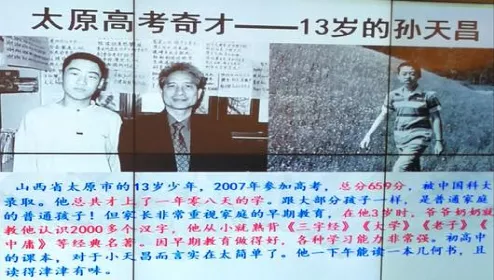 太原高考奇才——13岁的孙天昌
山西省太原市的13岁少年，2007年参加高考，总分659分，被中国科大
录取。他总共才上了一年零八天的学。跟大部分孩子一样，是普通家庭
的普通孩子！但家长非常重视家庭的早期教育，在他3岁时，爷爷奶奶就
教他认识2000多个汉字，他从小就熟背《三字经》《大学》《老子》《中
庸》等经典名著。因早期教育做得好，各种学习能力非常强。初高中
的课本，对于小天昌而言实在太简单了。他一下午能读一本几何书，且
读得津津有味。